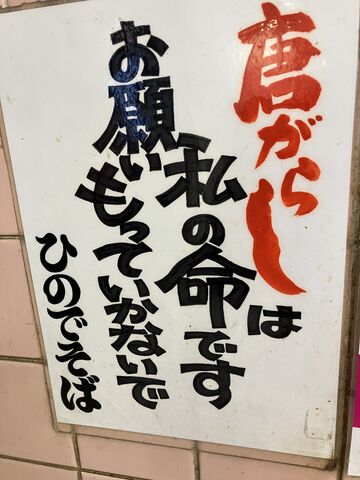 唐がらしは
私の命です
お願い
もっていかないで
ひのでそば